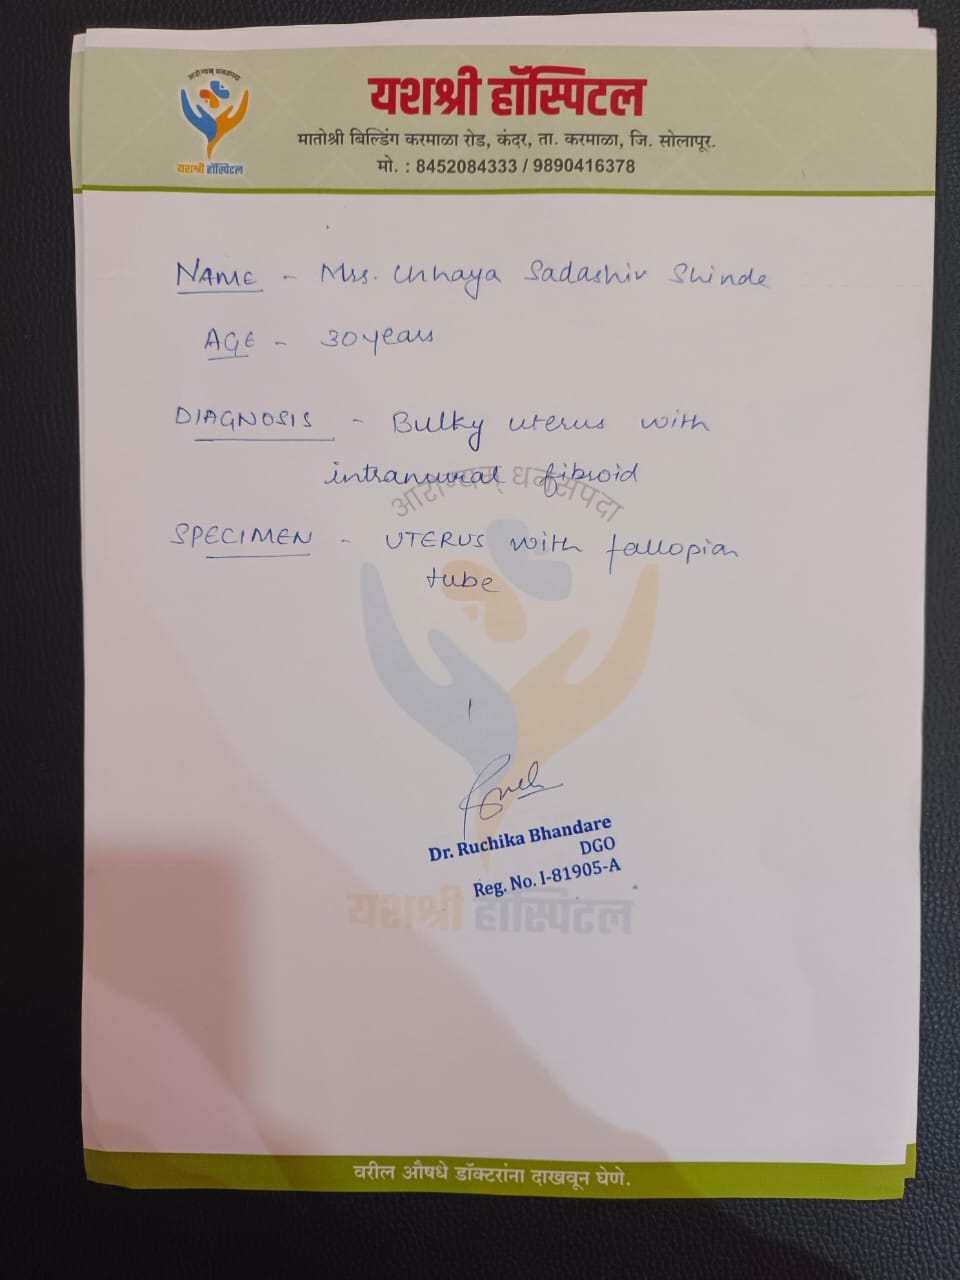 आरोग्यम् धनसंपदा
यशश्री हॉस्पिटल
यशश्री हॉस्पिटल
मातोश्री बिल्डिंग करमाळा रोड, कंदर, ता. करमाळा, जि. सोलापूर.
मो. : 8452084333 / 9890416378
NAME - Mrs. Chhaya Sadashiv Shinde
AGE - 30 years
DIAGNOSIS - Bulky uterus with
intramural fibroid
आरोग्यम् धनसंपदा
SPECIMEN - UTERUS with fallopian
tube
Dr. Ruchika Bhandare
DGO
Reg. No. I-81905-A
यशश्री हॉस्पिटल
वरील औषधे डॉक्टरांना दाखवून घेणे.